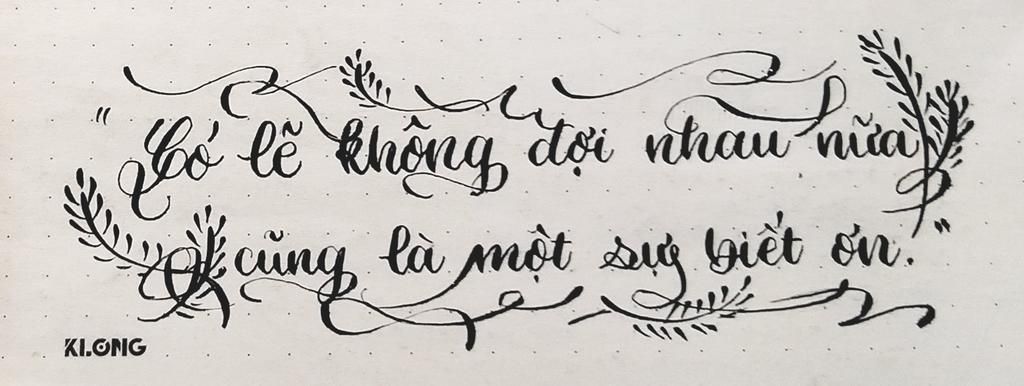 "Có lẽ không đợi nhau nữa
cũng là một sự biết ơn."
KLONG